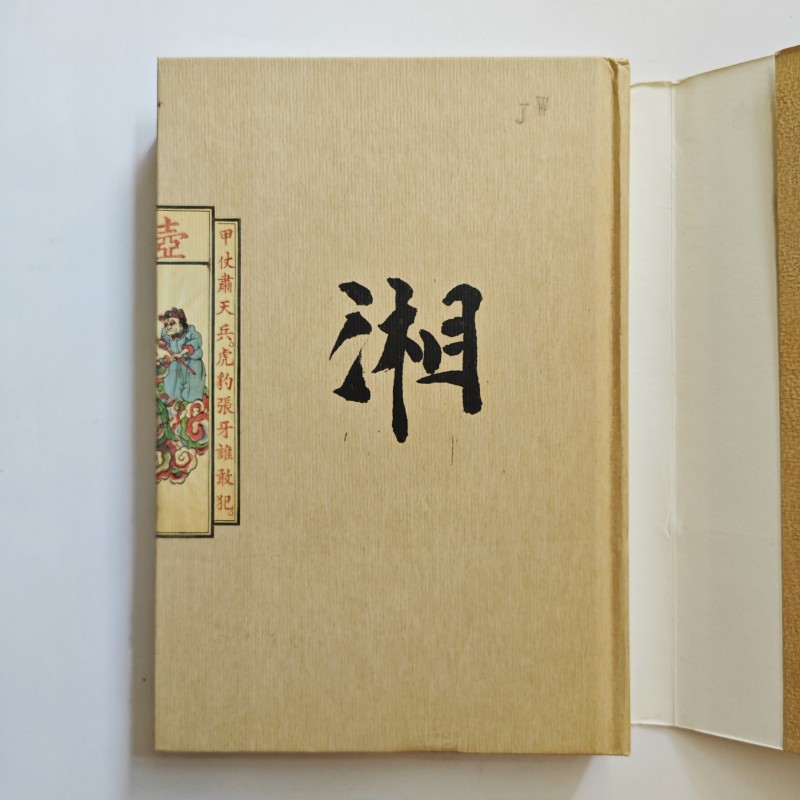 JW
壺
甲仗肅天兵。虎豹張牙誰敢犯。
湘